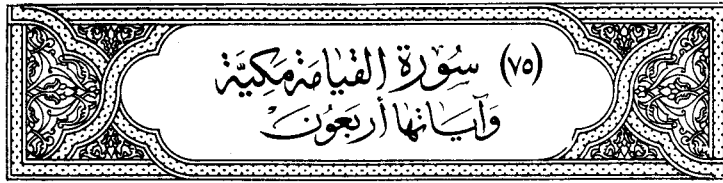 (٧٥) سُورَة القِيَامَة مَكِيَّة
وَآيَاتهَا أربَعُونَ